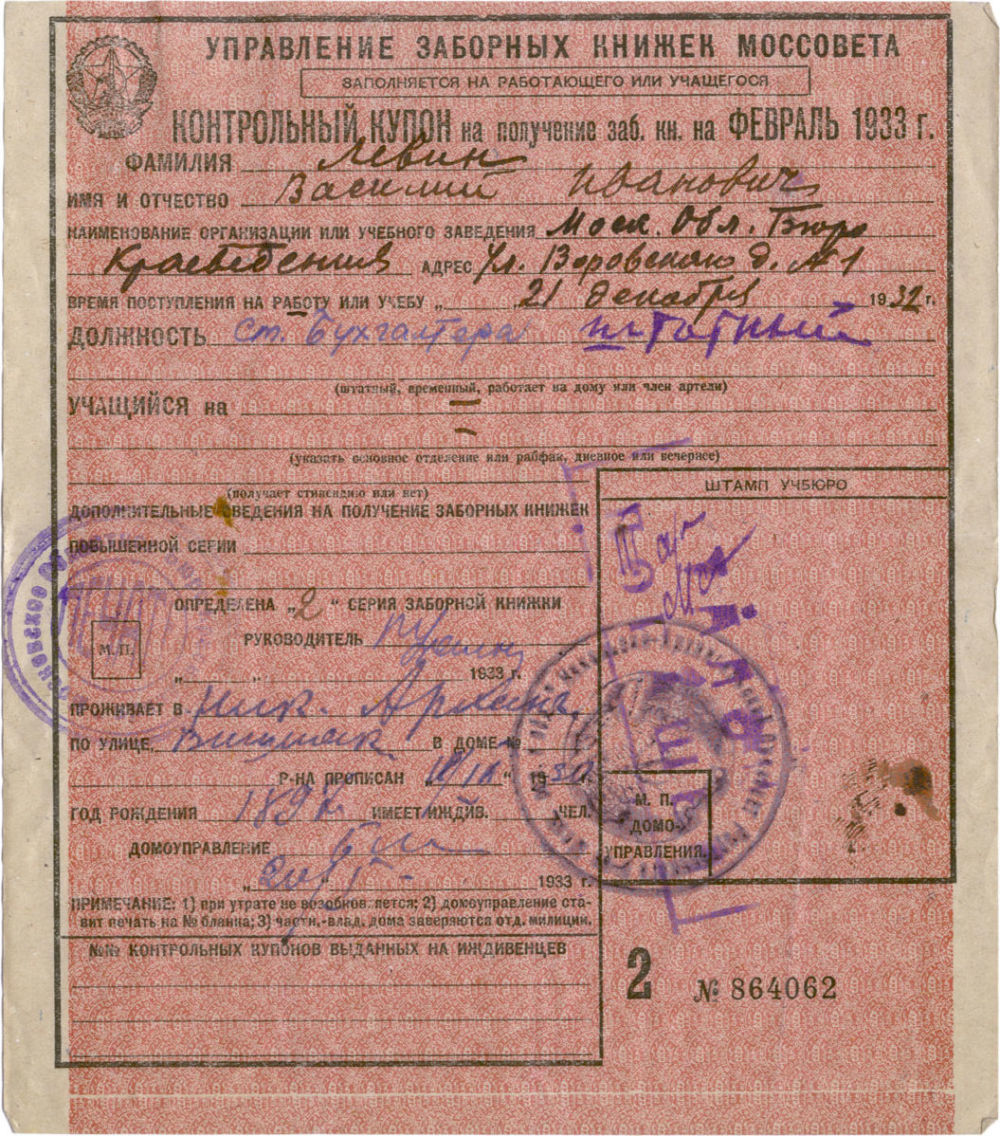 УПРАВЛЕНИЕ ЗАБОРНЫХ КНИЖЕК МОССОВЕТА
ЗАПОЛНЯЕТСЯ НА РАБОТАЮЩЕГО ИЛИ УЧАЩЕГОСЯ
КОНТРОЛЬНЫЙ КУПОН на получение заб. кн. на ФЕВРАЛЬ 1933 г.
ФАМИЛИЯ Левин
ИМЯ И ОТЧЕСТВО Василий Иванович
НАИМЕНОВАНИЕ ОРГАНИЗАЦИИ ИЛИ УЧЕБНОГО ЗАВЕДЕНИЯ Моск. Обл. Бюро
Краеведения АДРЕС Ул. Воровского д. №1
ВРЕМЯ ПОСТУПЛЕНИЯ НА РАБОТУ ИЛИ УЧЕБУ „ 21 декабря 1932 г.
ДОЛЖНОСТЬ ст. бухгалтера штатный
(штатный, временный, работает на дому или член артели)
УЧАЩИЙСЯ на —
(указать основное отделение или рабфак, дневное или вечернее)
(получает стипендию или нет)
ШТАМП УЧБЮРО
ДОПОЛНИТЕЛЬНЫЕ СВЕДЕНИЯ НА ПОЛУЧЕНИЕ ЗАБОРНЫХ КНИЖЕК
ПОВЫШЕННОЙ СЕРИИ
ОПРЕДЕЛЕНА „2" СЕРИЯ ЗАБОРНОЙ КНИЖКИ
РУКОВОДИТЕЛЬ
М. П.
„ " 1933 г.
ПРОЖИВАЕТ В
ПО УЛИЦЕ В ДОМЕ №
Р-НА ПРОПИСАН
ГОД РОЖДЕНИЯ ИМЕЕТ ИЖДИВ. ЧЕЛ.
М. П.
ДОМО-
УПРАВЛЕНИЯ
ДОМОУПРАВЛЕНИЕ
„ " 1933 г.
ПРИМЕЧАНИЕ: 1) при утрате не возобновляется; 2) домоуправление ста-
вит печать на № бланка; 3) частн.-влад. дома заверяются отд. милиции.
№№ КОНТРОЛЬНЫХ КУПОНОВ ВЫДАННЫХ НА ИЖДИВЕНЦЕВ
2 № 864062